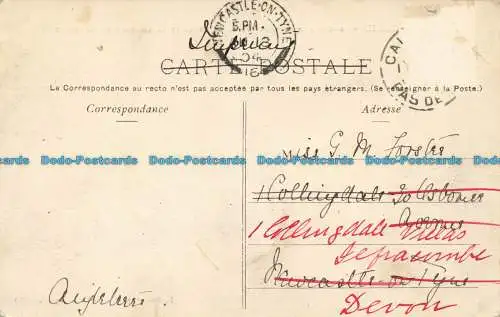 NEWCASTLE-ON-TYNE
5.PM
04
CARTE POSTALE
CAT
PAS DE
La Correspondance au recto n'est pas acceptée par tous les pays étrangers. (Se renseigner à la Poste.)
Correspondance
Adresse
Miss G. M. Forster
Dodo-Postcards Dodo-Postcards Dodo-Postcards Dodo-Postcards Dodo-Postcards
1 Collingdale 30 Osborne
Avenue
1 Collingdale Villas
Ilfracombe
Newcastle-on-Tyne
Angleterre
Devon